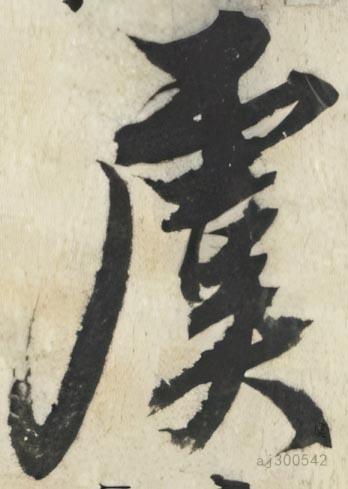 虞
aj300542